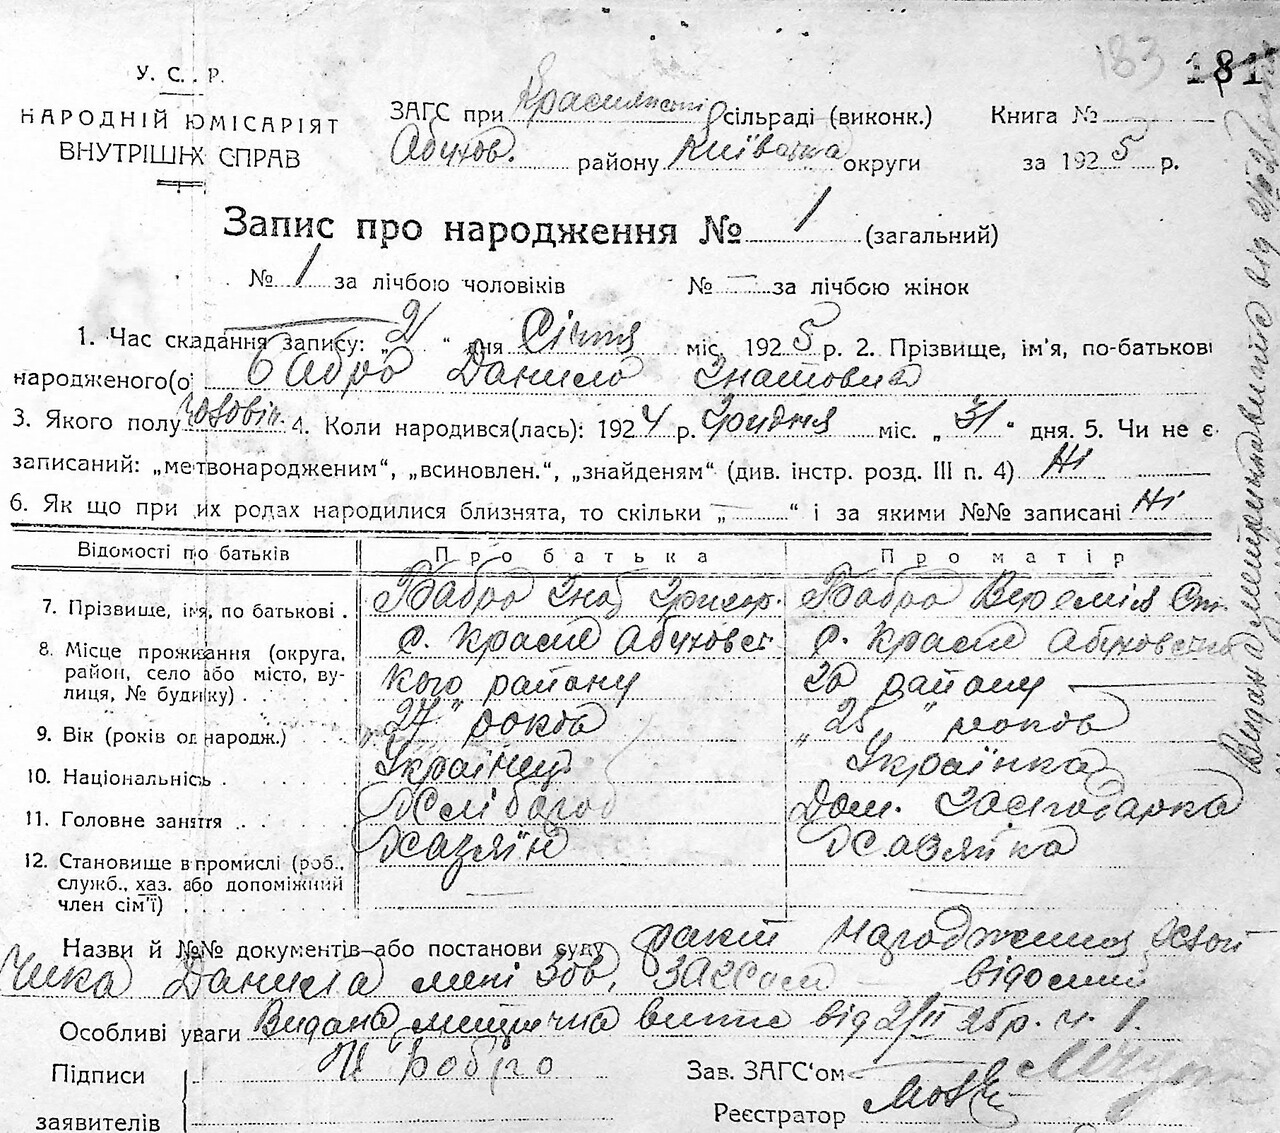 183 181
У. С. Р.
НАРОДНІЙ ЮМІСАРІЯТ
ВНУТРІШНІХ СПРАВ
ЗАГС при Краснянській сільраді (виконк.) Книга №
Абухов. району Київська округи за 1925 р.
Запис про народження № 1 (загальний)
№ 1 за лічбою чоловіків № — за лічбою жінок
1. Час складання запису: „ 2 “ дня Січня міс. 1925 р. 2. Прізвище, ім'я, по-батькові
народженого(ої) Бабро Данило Гнатович
3. Якого полу чоловіч. 4. Коли народився(лась): 1924 р. Грудня міс. „ 31 “ дня. 5. Чи не є
записаний: „мертвонародженим“, „всиновлен.“, „знайденям“ (див. інстр. розд. III п. 4) Ні
6. Як що при їх родах народилися близнята, то скільки „ — “ і за якими №№ записані Ні
Відомості про батьків Про батька Про матір
7. Прізвище, ім'я, по батькові . Бабро Гнат Григор. Бабро Веремія Ст.
8. Місце проживання (округа, район, село або місто, вулиця, № будинку) . . с. Красне Абуховсь
кого району с. Красне Абуховсько
го району
9. Вік (років од народж.) „27“ років „25“ років
10. Національність . Українец Українка
11. Головне заняття . . . . . Хлібороб Дом. Господарка
12. Становище в промислі (роб., служб., хаз. або допоміжний член сім'ї) . . . . . Хазяїн Хазяйка
Назви й №№ документів або постанови суду факт народження
Данила мені зав. ЗАГСом відомий
Особливі уваги Видана метрична витяг від 2/II 25 р. ч. 1.
Підписи
заявителів
Зав. ЗАГС'ом
Реєстратор
Видана від